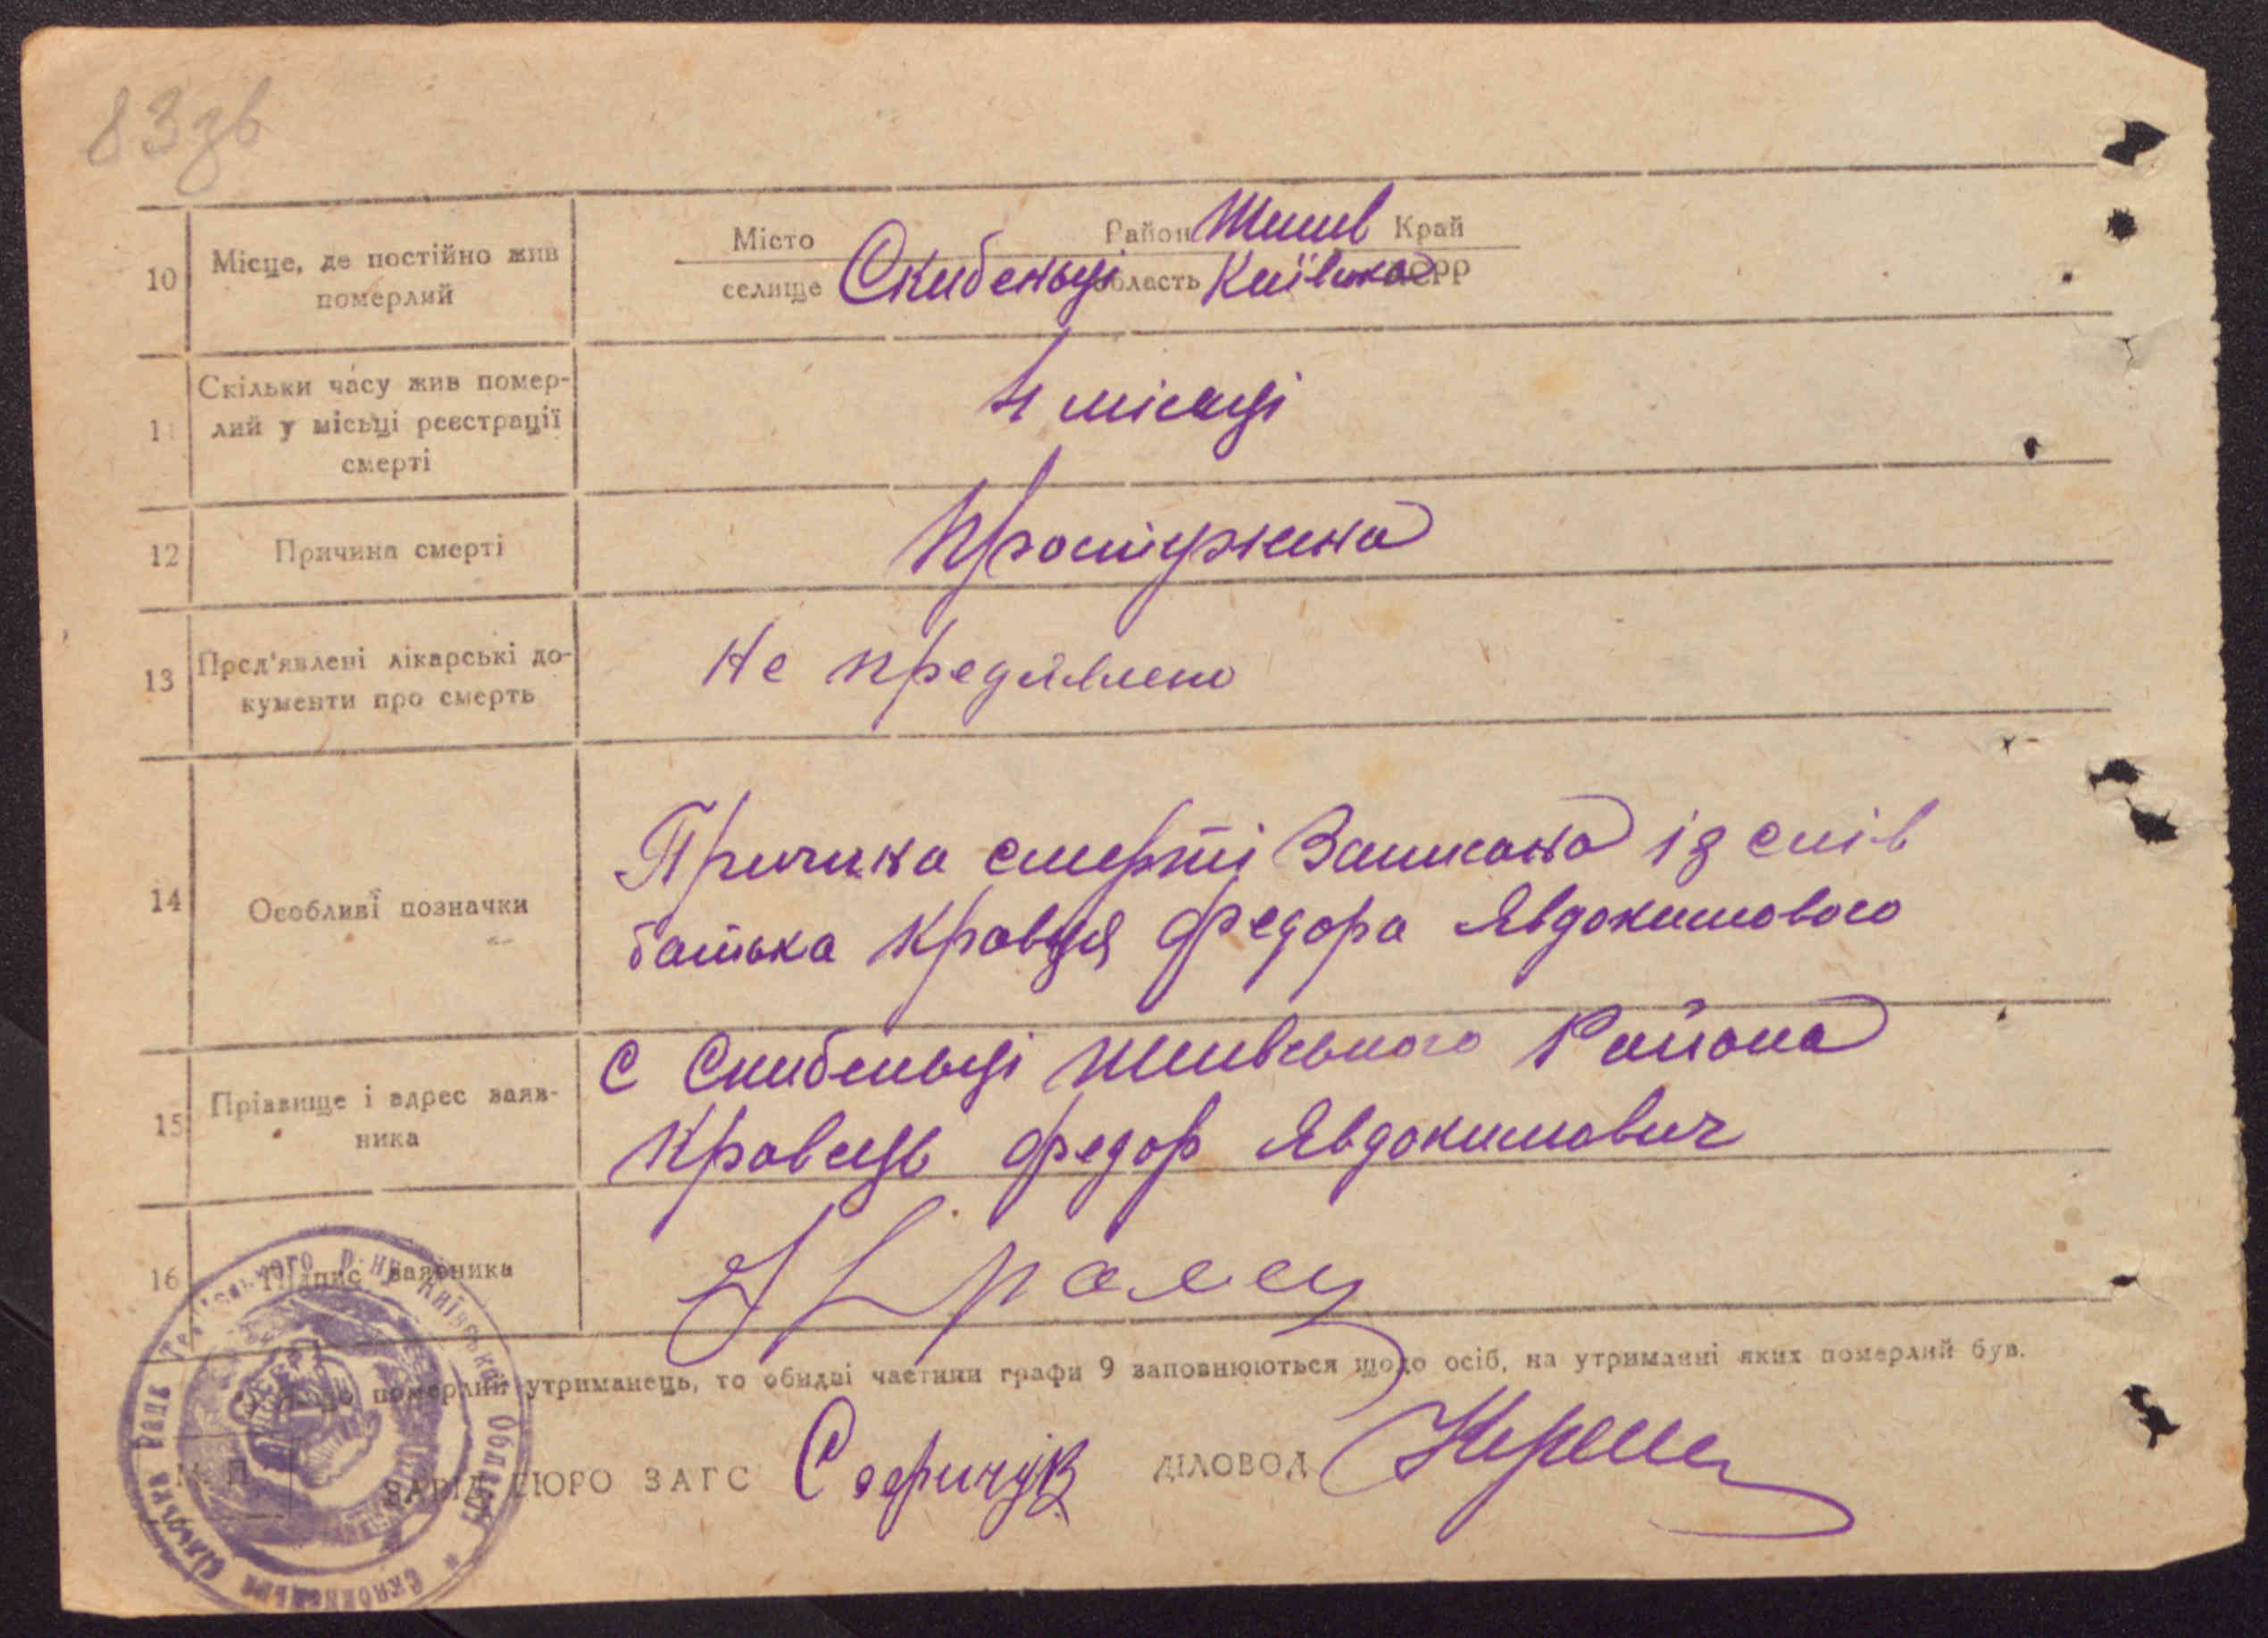 83зв
10 Місце, де постійно жив померлий
Місто Район Край
селище Скибеньці область Київська АСРР
11 Скільки часу жив помер-
лий у місьці реєстрації
смерті
4 місяці
12 Причина смерті Простужена
13 Пред'явлені лікарські до-
кументи про смерть
Не предявлено
14 Особливі позначки
Причина смерті Записана із слів
батька Кравця Федора Явдокимового
15 Прізвище і адрес заяв-
ника
С Скибеньці Району
Кравець Федор Явдокимович
16 Підпис заявника Кравец
померлий утриманець, то обидві частини графи 9 заповнюються щодо осіб, на утриманні яких померлий був.
М. П.
ЗАВІД. БЮРО ЗАГС ДІЛОВОД